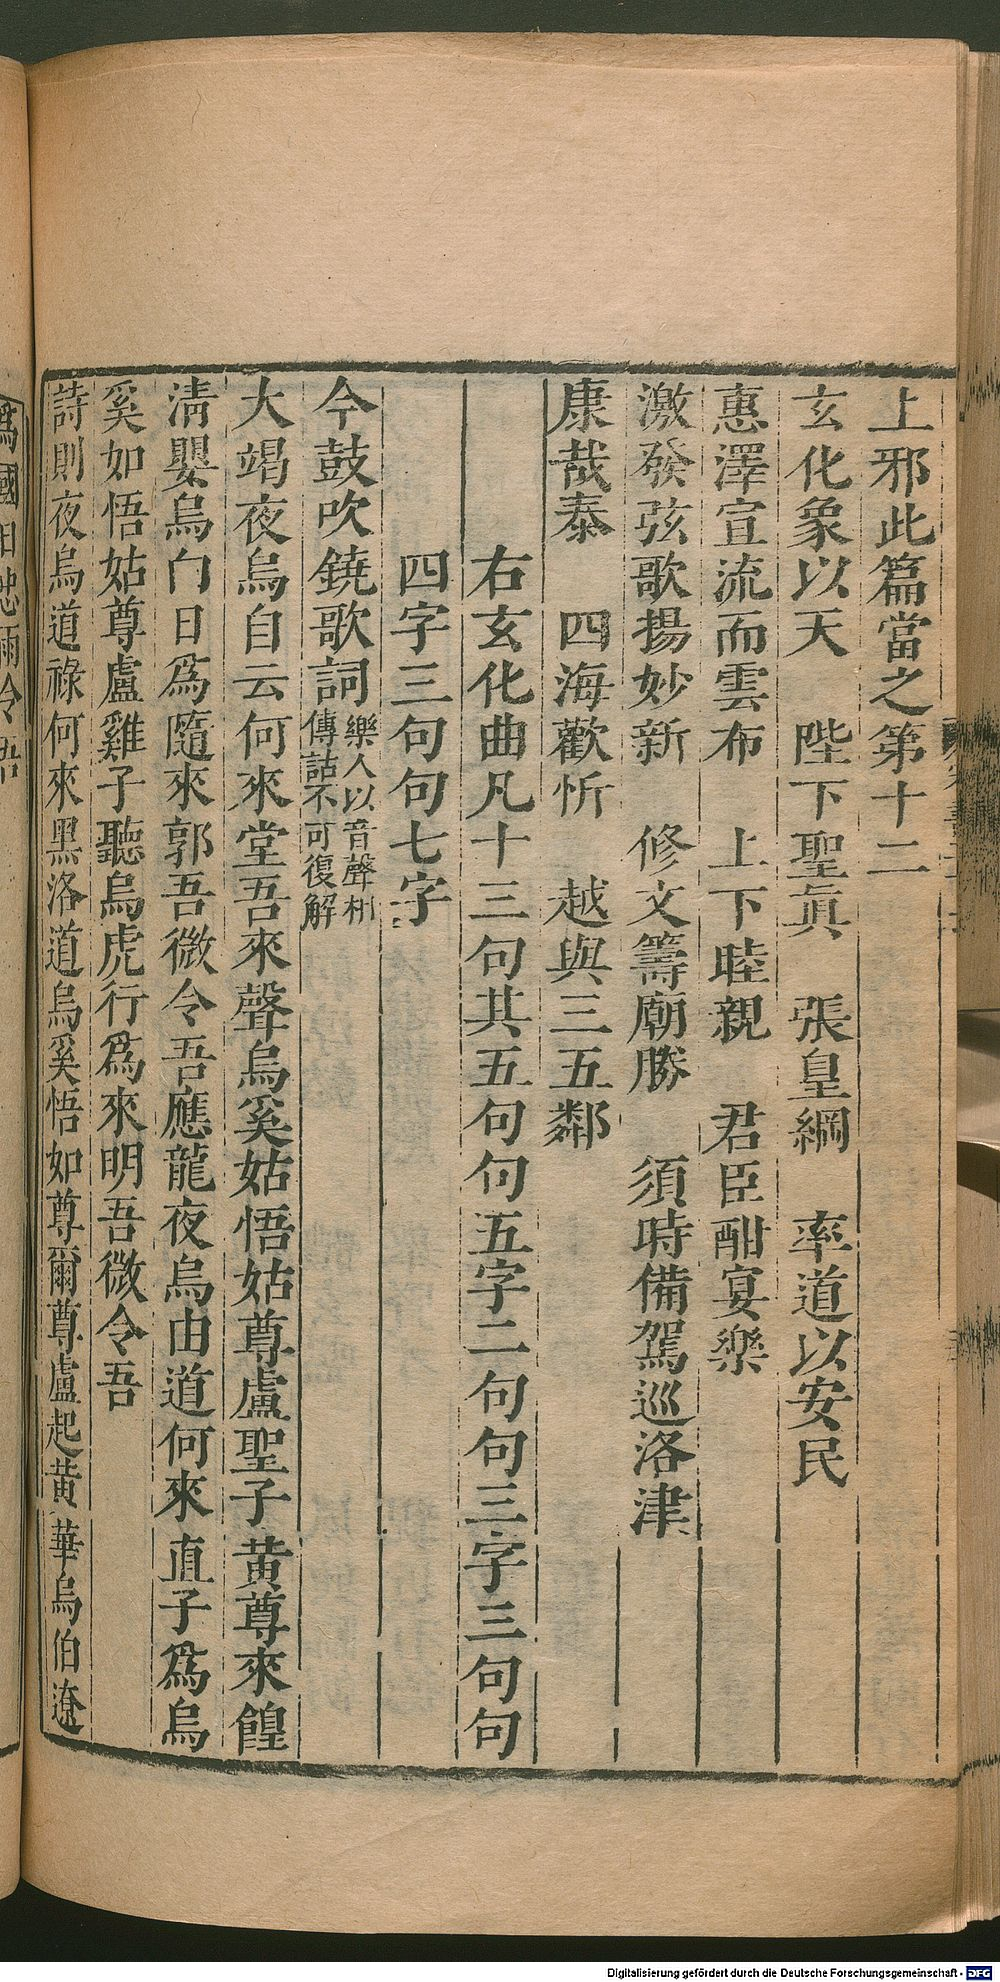 上邪此篇當之第十二
玄化象以天　陛下聖眞　張皇綱　率道以安民
惠澤宣流而雲布　上下睦親　君臣酣宴樂
激發弦歌揚妙新　修文籌廟勝　須時備駕巡洛津
康哉泰　四海歡忻　越與三五鄰
右玄化曲凡十三句其五句句五字二句句三字三句句
四字三句句七字
今鼓吹鐃歌詞樂人以音聲相
傳詁不可復解
大竭夜烏自云何來堂吾來聲烏奚姑悟姑尊盧聖子黄尊來餭
淸嬰烏白日爲隨來郭吾微令吾應龍夜烏由道何來直子爲烏
奚如悟姑尊盧雞子聽烏虎行爲來明吾微令吾
詩則夜烏道祿何來黑洛道烏奚悟如尊爾尊盧起黄華烏伯遼
爲國日忠雨令吾
Digitalisierung gefördert durch die Deutsche Forschungsgemeinschaft - DFG